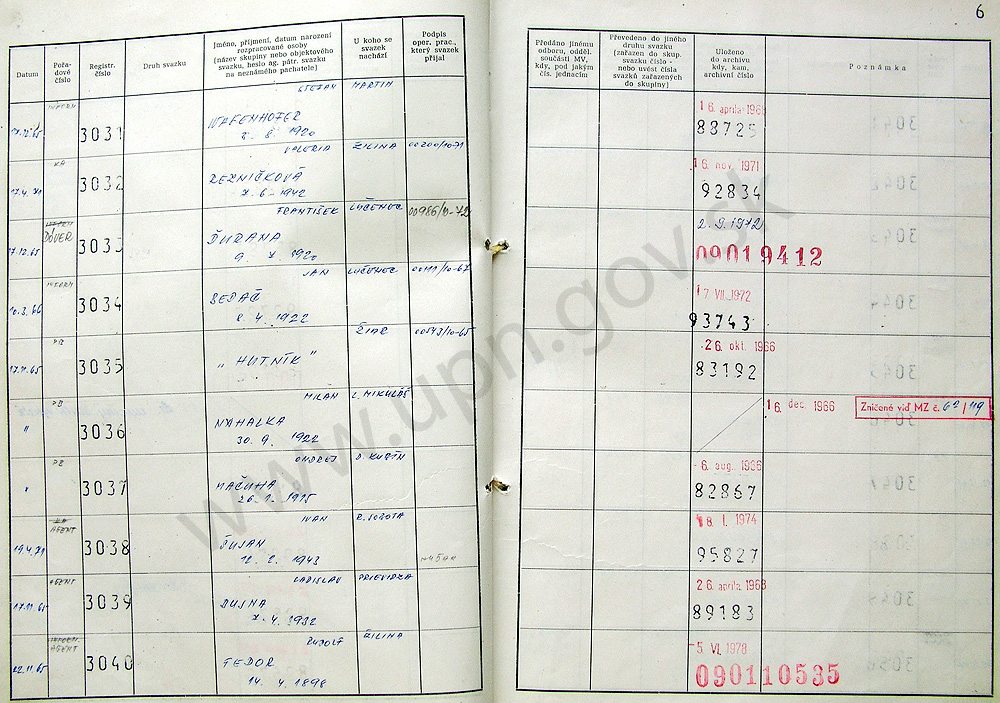 6
Datum
Pořa-
dové
číslo
Registr.
číslo
Druh svazku
Jméno, příjmení, datum narození
rozpracované osoby
(název skupiny nebo objektového
svazku, heslo ag. pátr. svazku
na neznámého pachatele)
U koho se
svazek
nachází
Podpis
oper. prac.,
který svazek
přijal
Předáno jinému
odboru, odděl.
součásti MV,
kdy, pod jakým
čís. jednacím
Převedeno do jiného
druhu svazku
(zařazen do skup.
svazku číslo -
nebo uvést čísla
svazků zařazených
do skupiny)
Uloženo
do archivu
kdy, kam,
archivní číslo
Poznámka
ŠTEFAN MARTIN
3031
1920
16. apríla 1968
88725
VALERIA ŽILINA 00200/10-71
KA
17.4.71 3032
REZNIČKOVÁ
7.6.1942
16. nov. 1971
92834
FRANTIŠEK LUČENEC 00986/10-72
DÔVER
17.12.65 3033
ĎURANA
9. X. 1920
2.9.1972
09019412
JAN LUČENEC 00111/10-67
INFORM
10.3.66 3034
SEDAČ
2.4.1922
17 VII. 1972
93743
ŽIAR 00543/10-65
17.11.65 3035
"HUTNÍK"
26. okt. 1966
83192
MILAN L. MIKULÁŠ
" 3036
NAHALKA
30.9.1922
16. dec. 1966
Zničené viď MZ č. 62/119
ONDREJ D. KUBÍN
" 3037
MAČUHA
26.2.1915
6. aug. 1966
82867
IVAN R. SOBOTA
AGENT
19.4.71 3038
ŠUJAN
12.2.1943
18 I. 1974
95827
LADISLAV PRIEVIDZA
AGENT
17.11.65 3039
7.4.1932
26. apríla 1968
89183
RUDOLF ŽILINA
AGENT
22.11.65 3040
TEDOR
14.4.1898
5. VI. 1978
090110535
www.upn.gov.sk